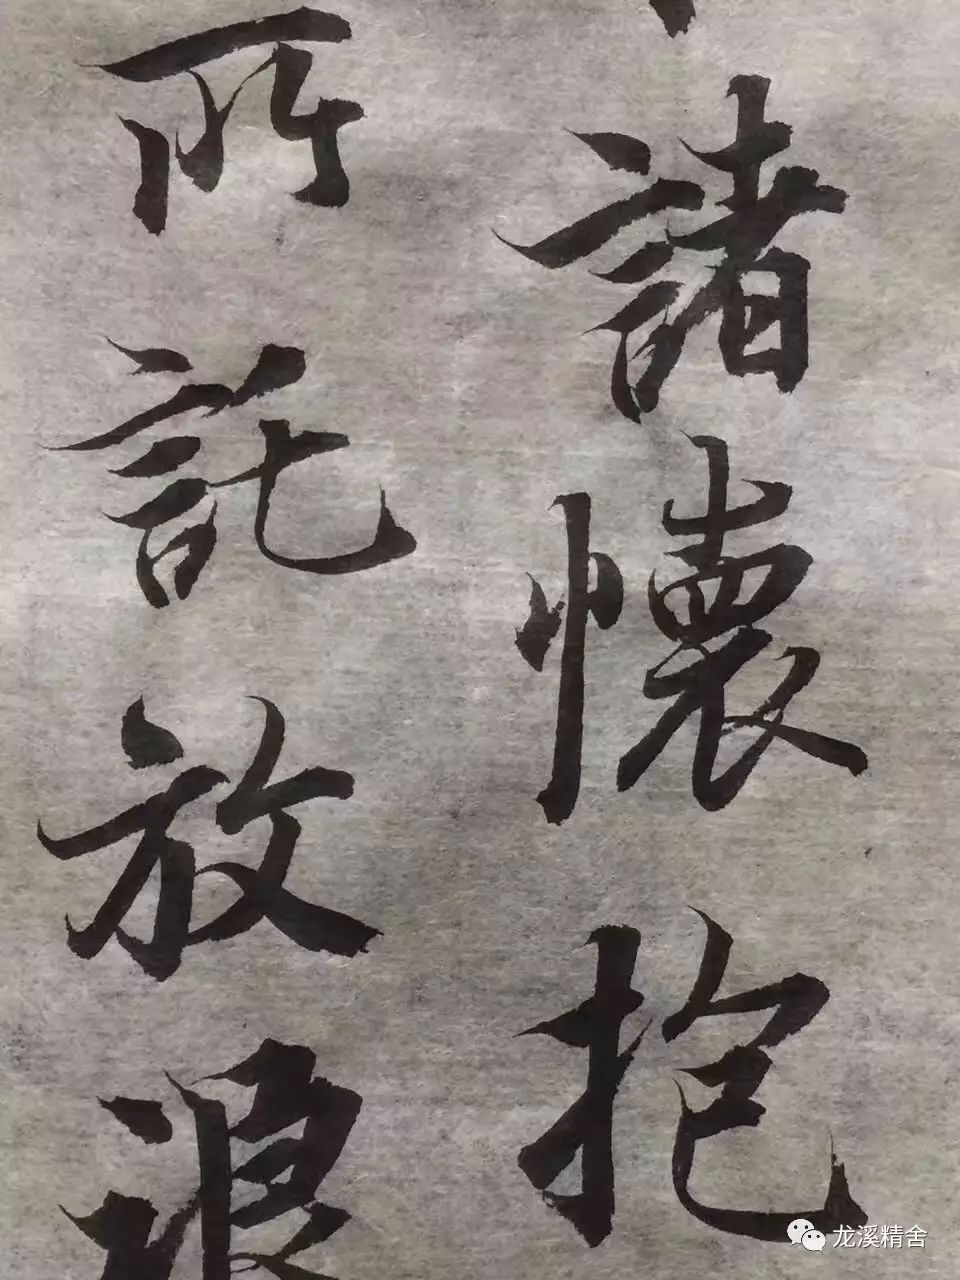 諸懷抱
所託放浪
龙溪精舍